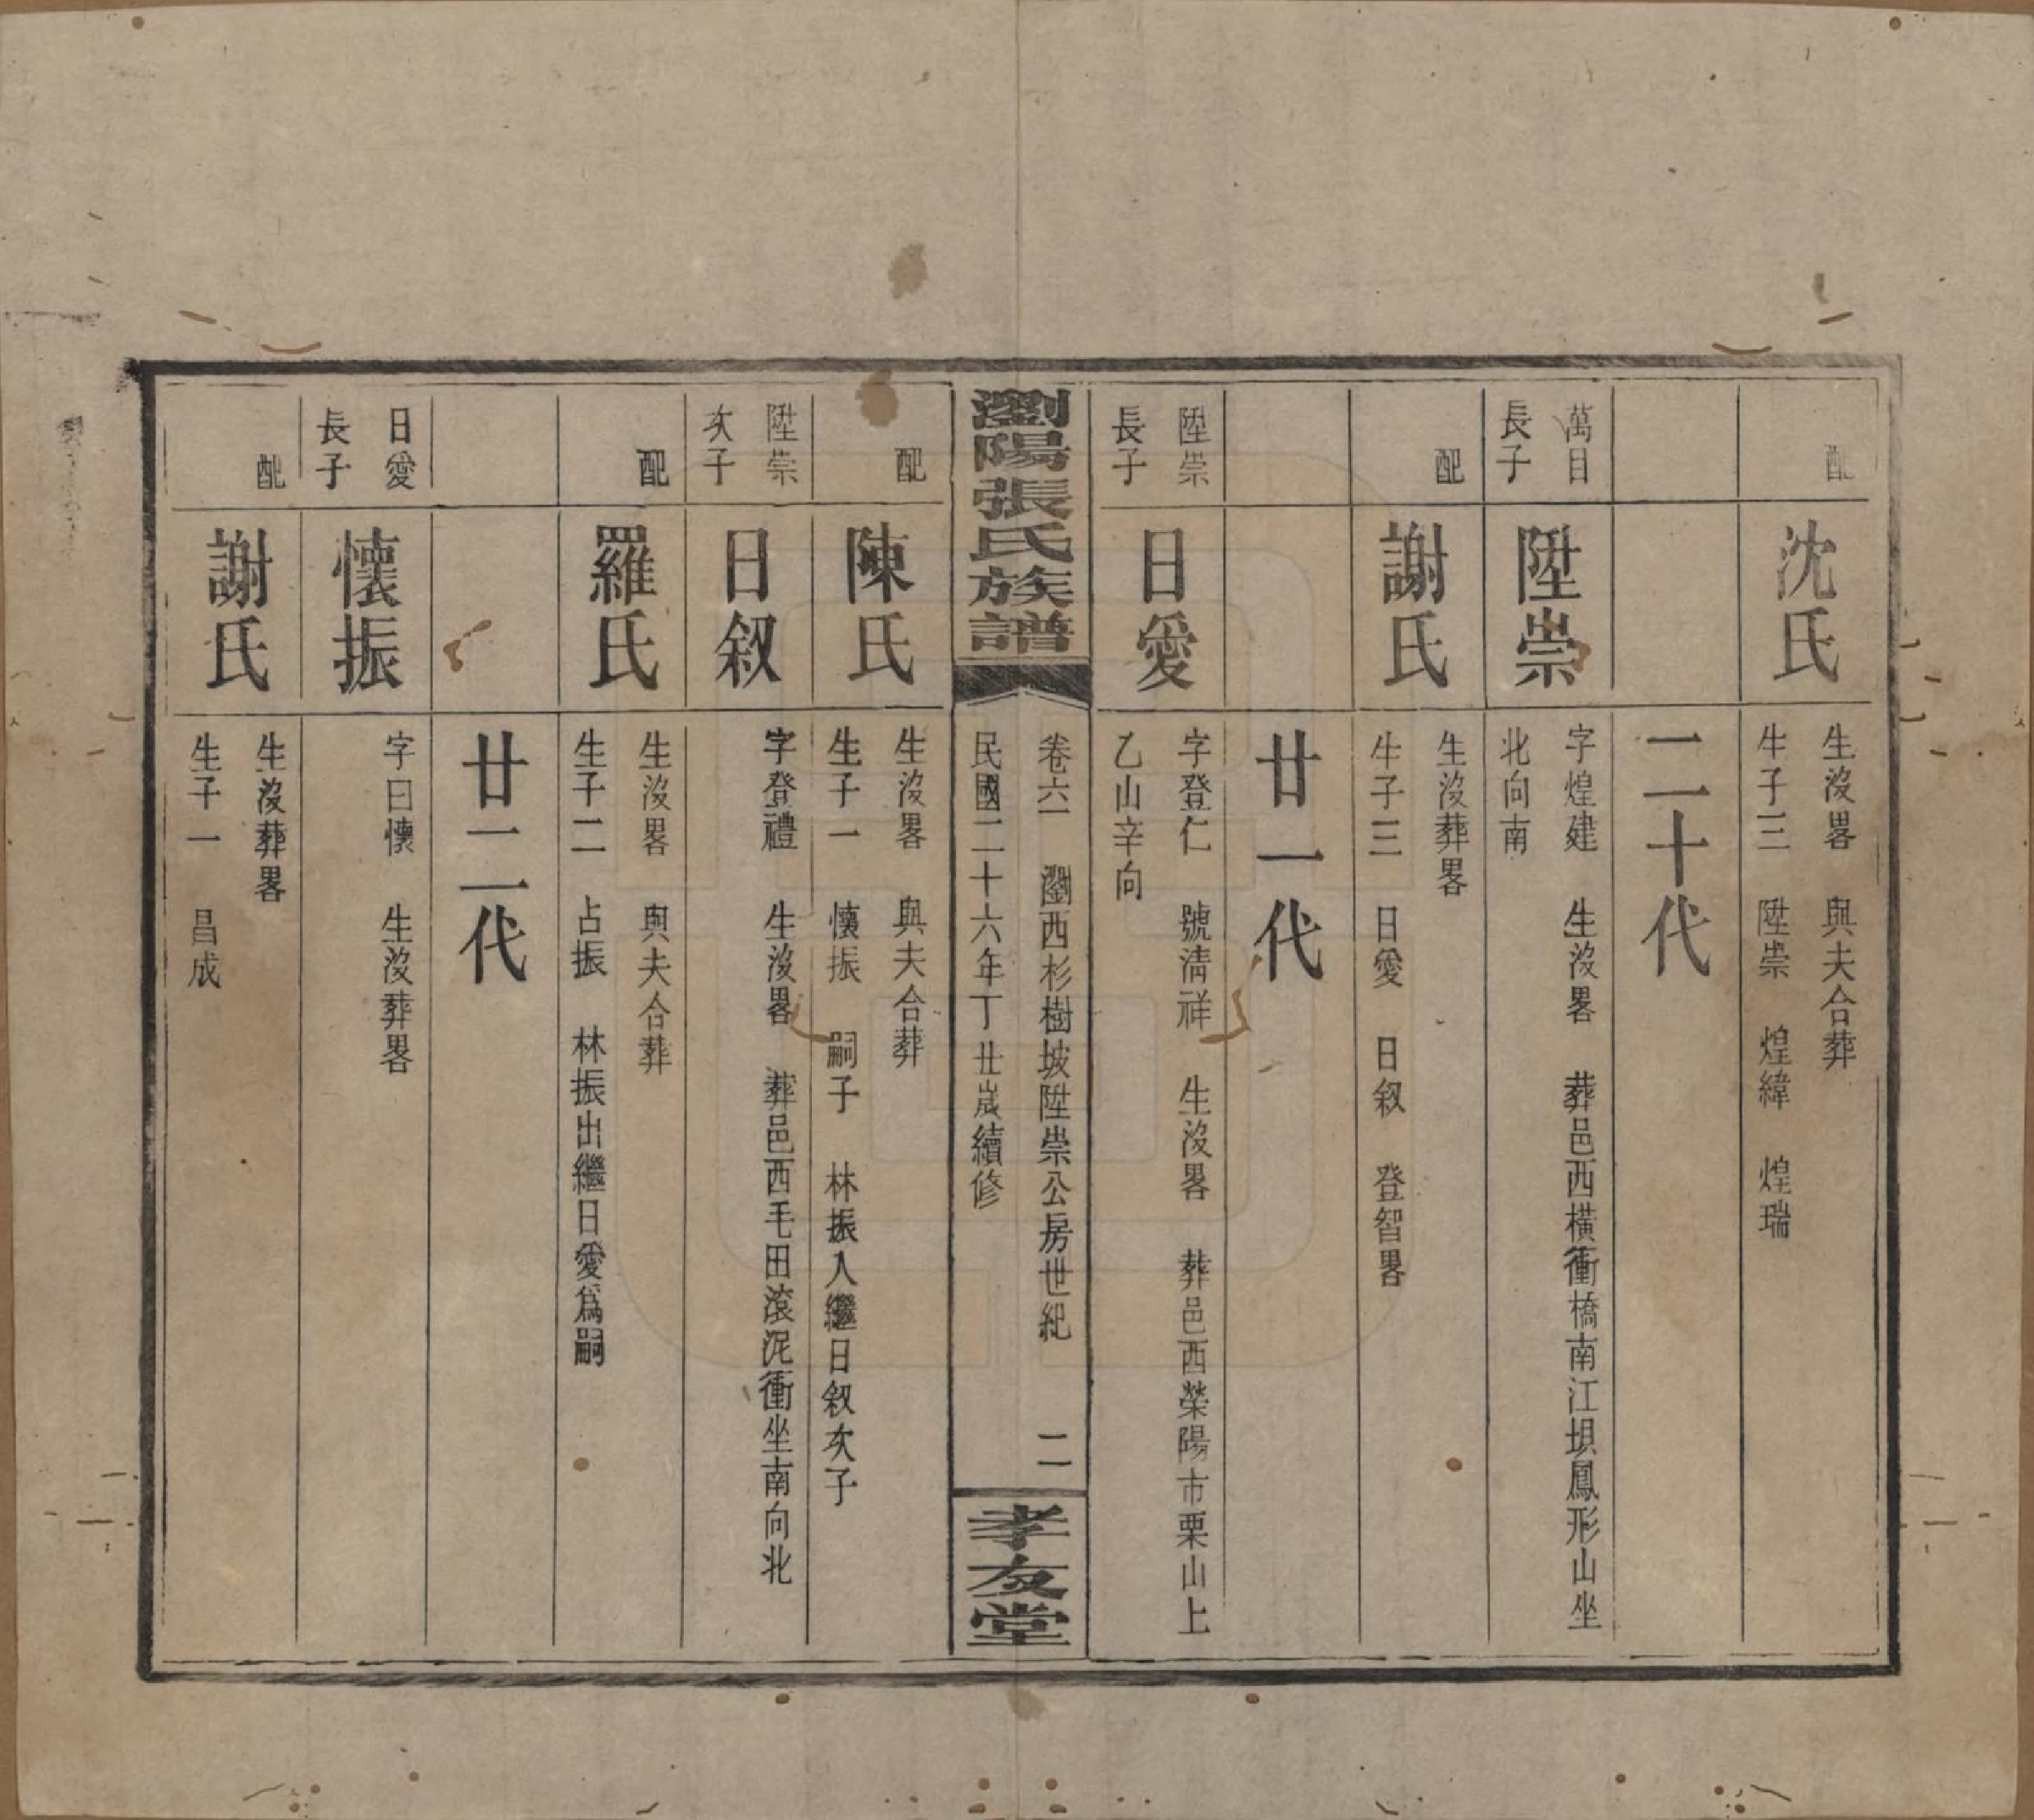 配
沈氏
生沒畧　與夫合葬
生子三　陞崇　煌緯　煌瑞
二十代
萬目
長子
陞崇
字煌建　生沒畧　葬邑西橫衝橋南江坝鳳形山坐
北向南
配
謝氏
生沒葬畧
生子三　日愛　日叙　登智畧
廿一代
陞崇
長子
日愛
字登仁　號清祥　生沒畧　葬邑西榮陽市栗山上
乙山辛向
瀏陽張氏族譜
卷六　瀏西杉樹坡陞崇公房世紀　二
民國二十六年丁丑嵗續修
孝友堂
配
陳氏
生沒畧　與夫合葬
生子一　懷振　嗣子　林振入繼日叙次子
陞崇
次子
日叙
字登禮　生沒畧　葬邑西毛田滚泥衝坐南向北
配
羅氏
生沒畧　與夫合葬
生子二　占振　林振出繼日愛爲嗣
廿二代
日愛
長子
懷振
字曰懷　生沒葬畧
配
謝氏
生沒葬畧
生子一　昌成